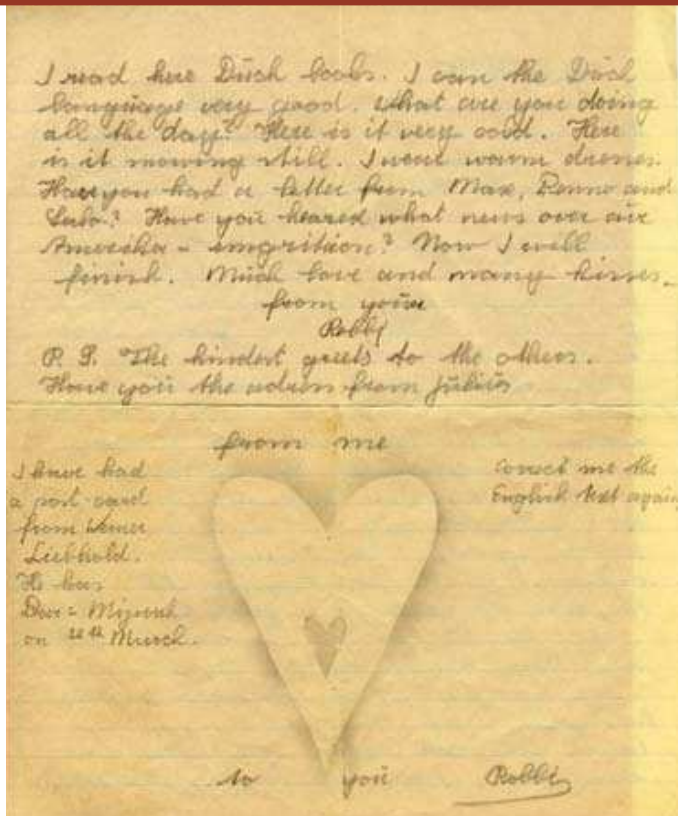 I read here Düch books. I can the Düch
language very good. What are you doing
all the day? Here is it very cold. Here
is it snowing still. I wear warm dresses.
Have you had a letter from Max, Benno and
Have you heared what news over our
Amerika - emgrition? Now I will
finish. Müch love and many kisses.
from yoür
Robbi
P. S. The kindest greets to the others.
Have yoü the adress from Jülius
from me
I have had
a post-card
from Werner
Liebhold.
He has
Bar = Mizwah
on March.
correct me the
English text again
to yoü Robbi